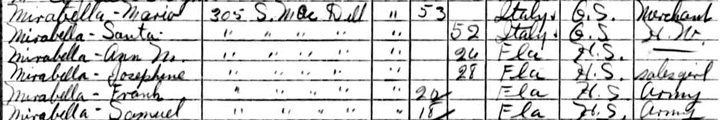 Mirabella - Mario 305 S. Mac Dill " 53 Italy. G.S. Merchant
Mirabella - Santa " " " " " 52 Italy. G.S. H.W.
Mirabella - Ann M. " " " " " 26 Fla H.S. —
Mirabella - Josephine " " " " " 28 Fla H.S. salesgirl
Mirabella - Frank " " " " " 20 Fla H.S. Army
Mirabella - Samuel " " " " " 18 Fla H.S. Army